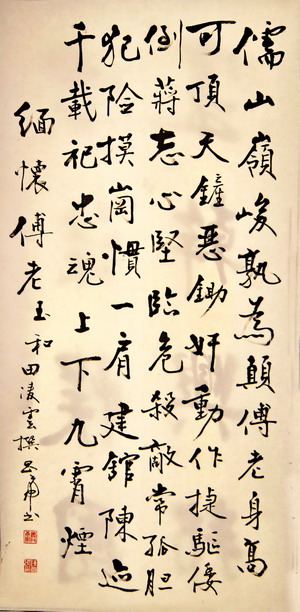 儒山嶺峻孰為顛傅老身高
可頂天鏟惡鋤奸動作捷驅倭
倒蔣志心堅臨危殺敵常孤胆
犯險摸崗慣一肩建館陳迹
千載祀忠魂上下九霄煙
緬懷傅老玉和田凌雲撰